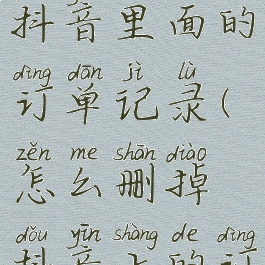 抖音里面的
dìng dān jì lù
订单记录(
zěn me shān diào
怎么删掉
dǒu yīn shàng de dìng
抖音上的订